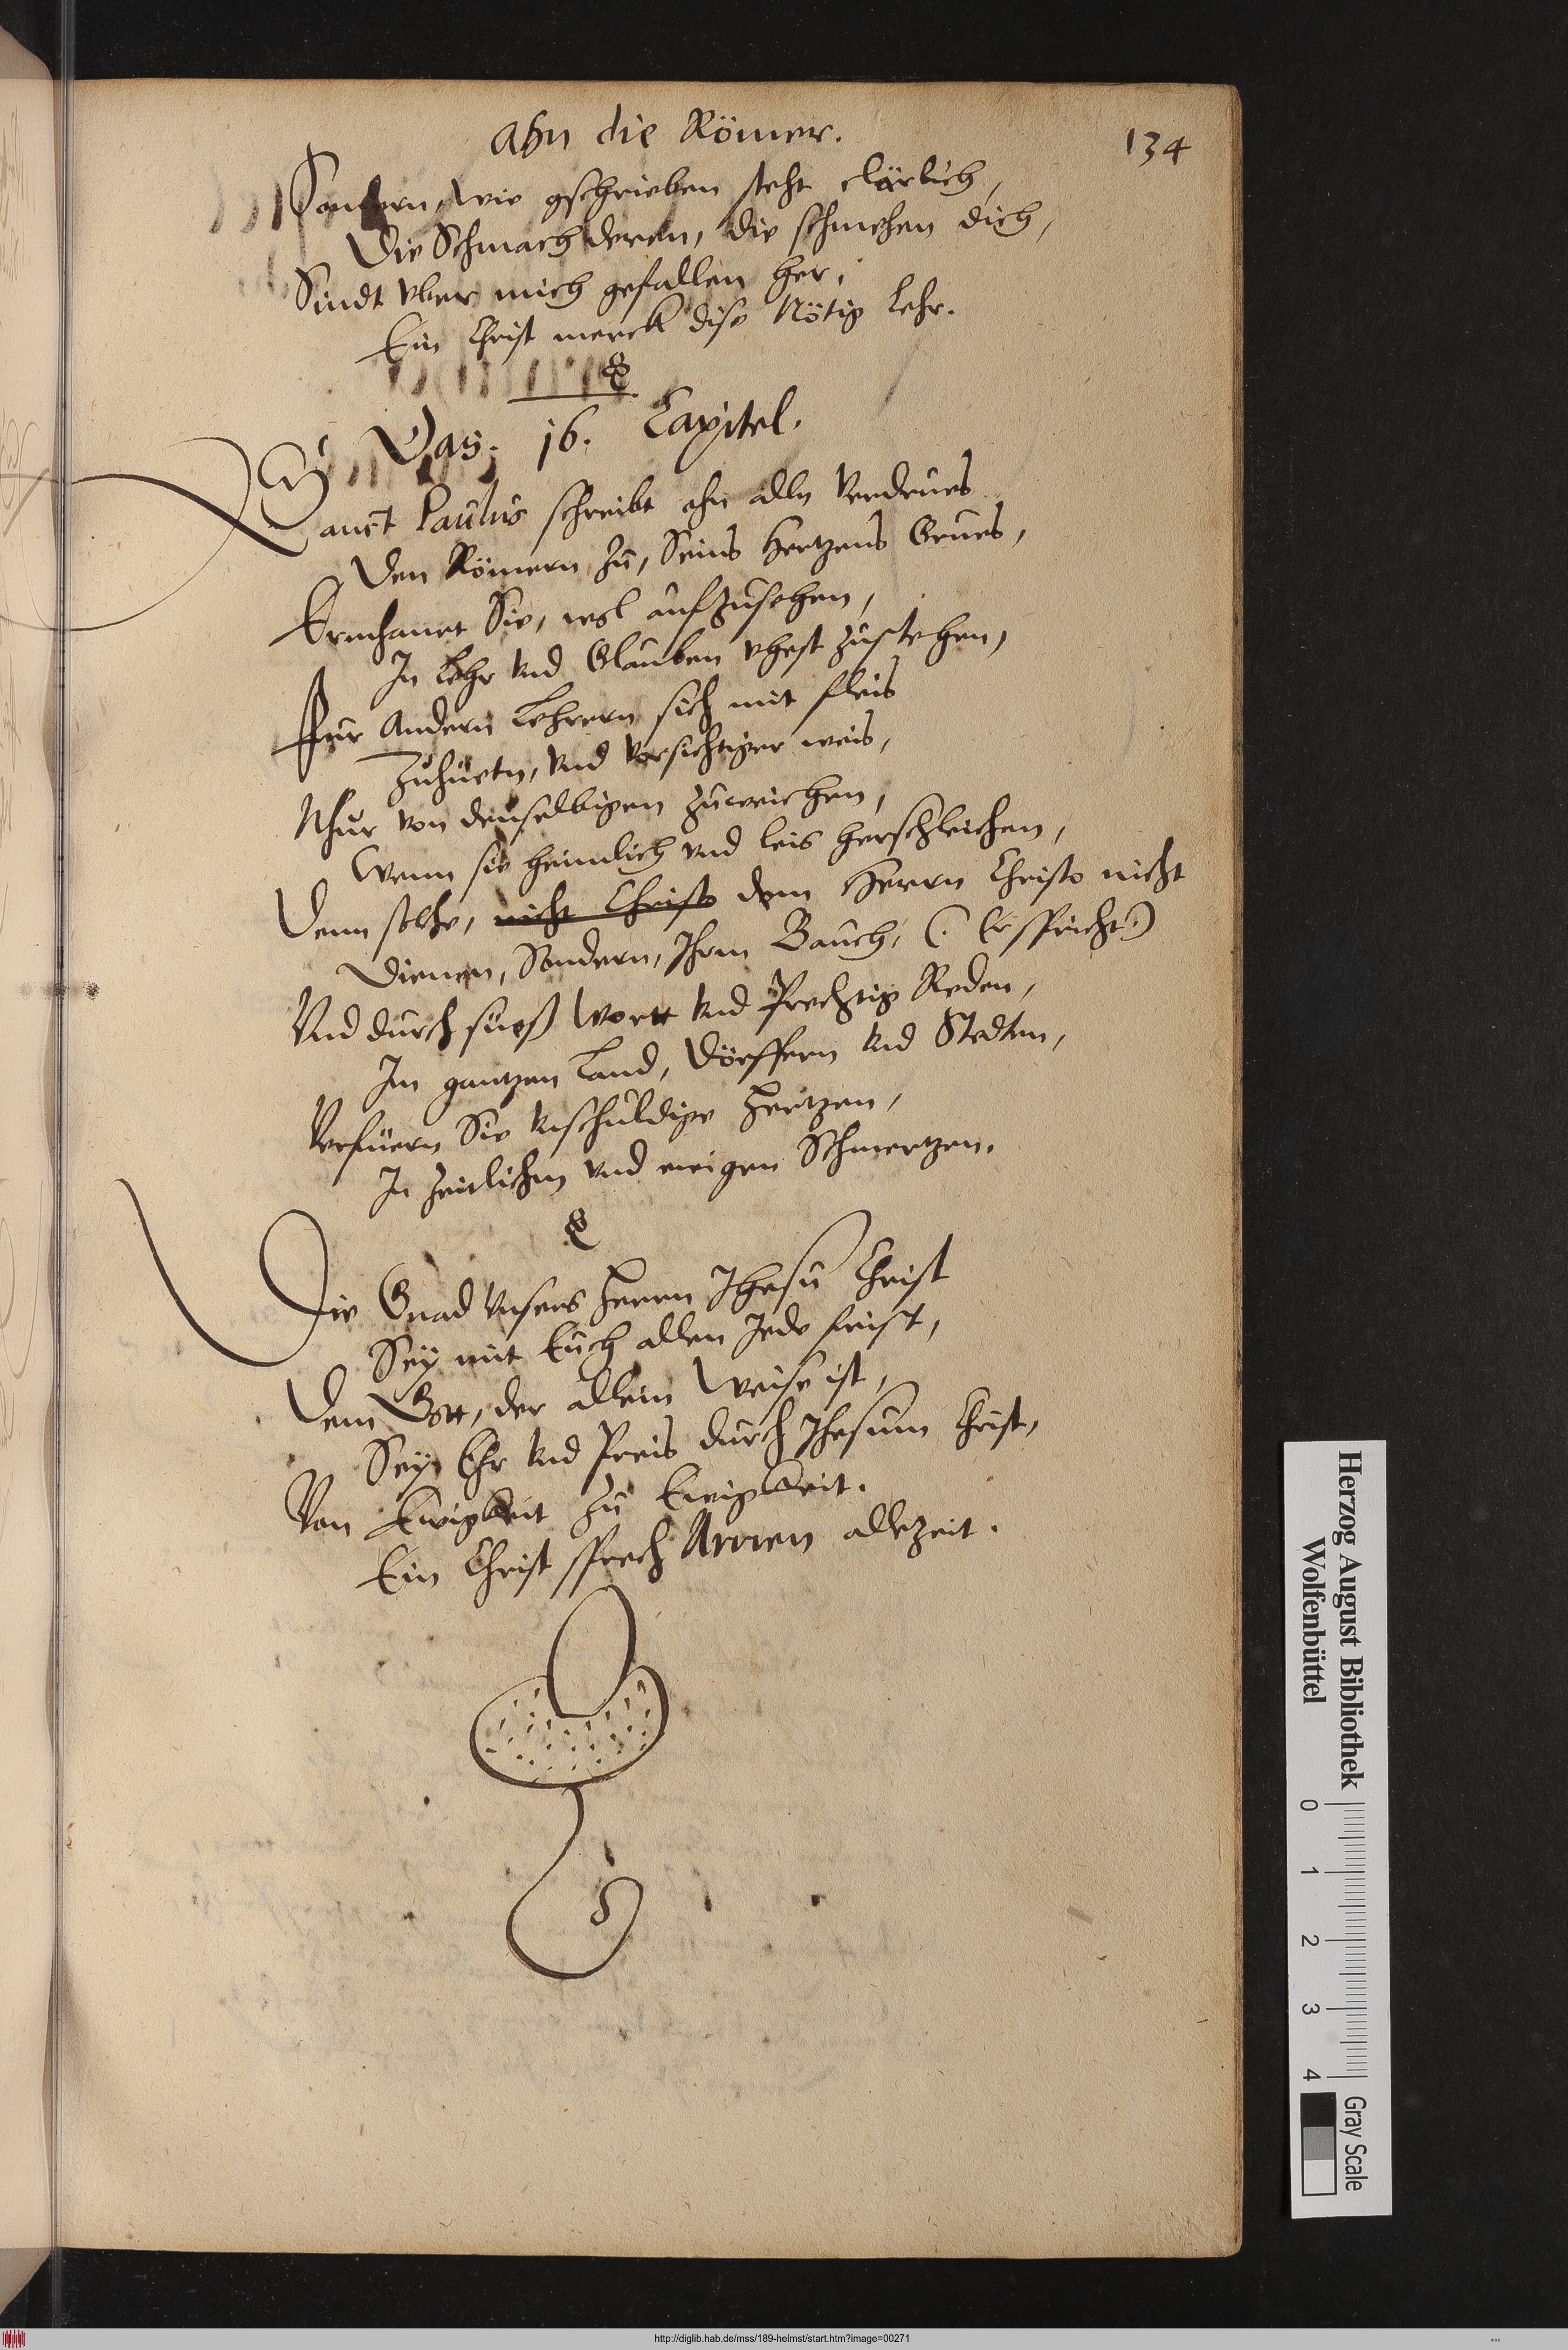 Ahn die Römer.
134
Sondern, wie gschrieben steht clärlich,
Die Schmach deren, die schmehen dich,
Sindt vber mich gefallen her,
Ein Christ merck dise Nötig Lehr.
Das. 16. Capitel.
Sanct Paulus schreibt ohn alln Verdrues
Den Römern zu, Seins Hertzens Grues,
Ermhanet Sie, wol aufzusehen,
In Lehr vnd Glauben vhest zustehen,
Fur Andern Lehrern sich mit fleis
Zuhuetn, vnd vorsichtiger weis,
Nhur von denselbigen zuweichen,
Wenn sie heimlich vnd leis herschleichen,
Denn solche, nicht Christo dem Herrn Christo nicht
Dienen, Sondern, Ihrm Bauch, (. Er spricht.)
Vnd durch suess Wortt vnd Prechtig Reden,
Im gantzen Land, Dörffern vnd Stedten,
Verfüern Sie vnschuldige Hertzen,
In zeitlichen vnd ewigen Schmertzen.
Die Gnad vnsers Herrn Jhesu Christ
Sey mit Euch allen Jede frist,
Dem Gott, der allein Weise ist,
Sey Ehr vnd Preis durch Jhesum Christ,
Von Ewigkeit zu Ewigkeit.
Ein Christ sprech Amen allezeit.
Herzog August Bibliothek
Wolfenbüttel
0 1 2 3 4
Gray Scale
http://diglib.hab.de/mss/189-helmst/start.htm?image=00271